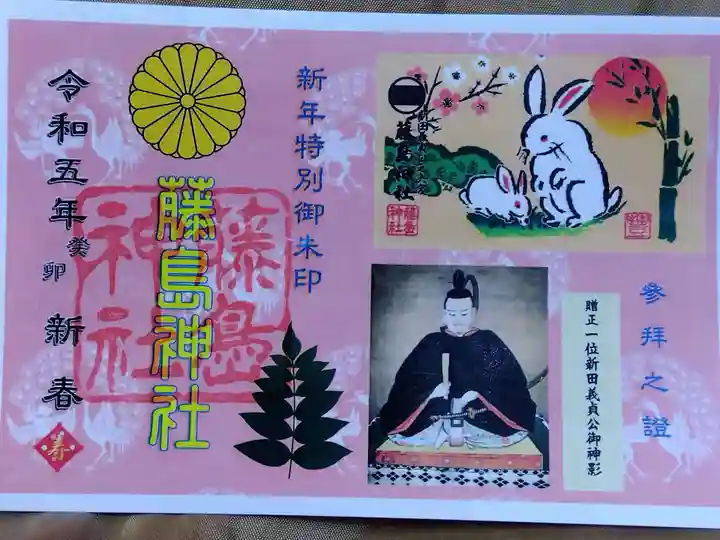 參拝之證
贈正一位新田義貞公御神影
藤島神社
藤島神社
新年特別御朱印
藤島神社
藤島神社
令和五年癸卯新春
寿